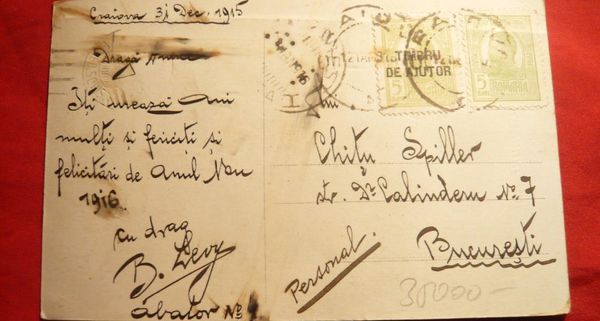 Craiova 31 Dec. 1915
Dragă
Iți urează Ani
mulți și fericiți și
felicitări de Anul Nou
1916.
cu drag
B. Levy
Abator No
TIMBRU
DE AJUTOR
5
5
Chițu Spiller
str. Dr Calinderu No 7
București
Personal.
30000-